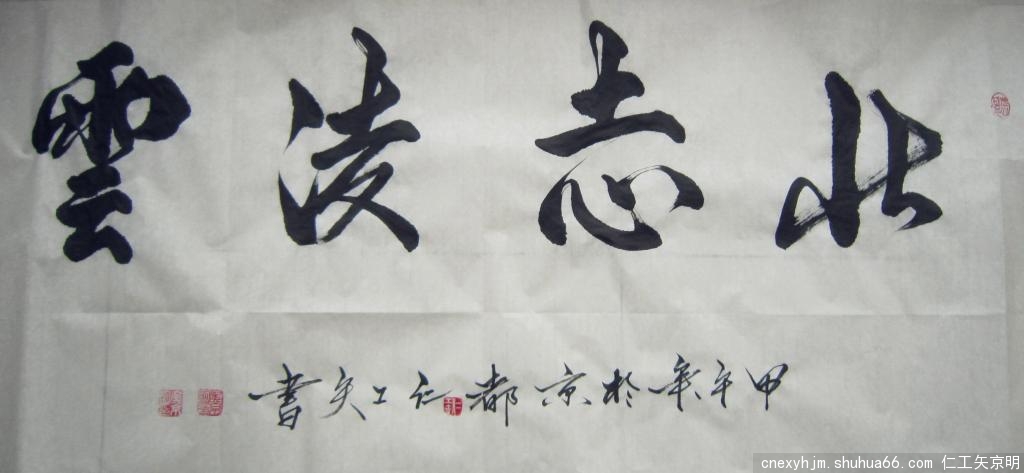 壮志凌雲
甲午年於京都仁工矢書
cnexyhjm.shuhua66.com 仁工矢京明